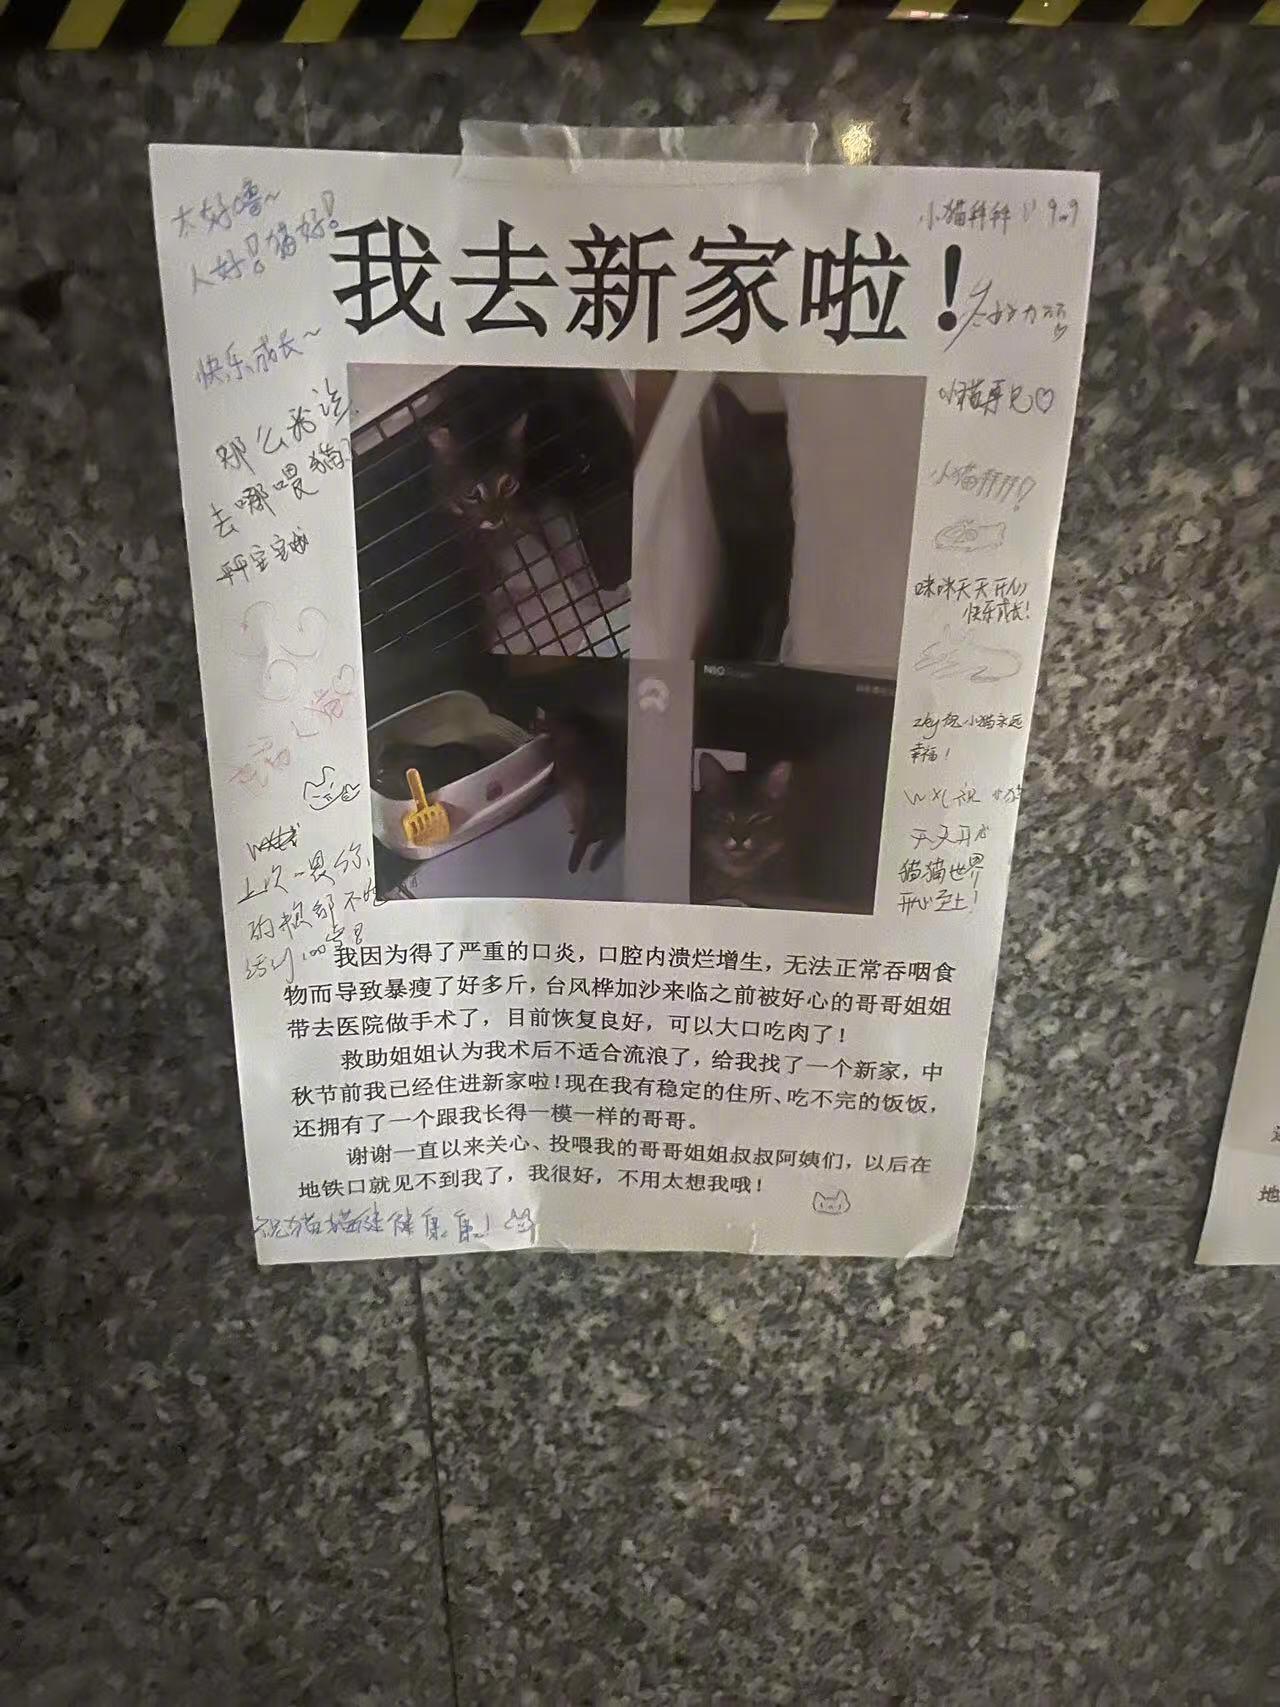 太好噜~
人好！猫好！
小猫拜拜
我去新家啦！
快乐成长~
小猫再见♡
那么我该
去哪喂猫？
小猫拜拜！
咪咪天天开心
快乐成长！
NIO
zky祝小猫永远
幸福！
WXL祝小猫
天天开心
猫猫世界
开心至上！
上次喂你
我因为得了严重的口炎，口腔内溃烂增生，无法正常吞咽食
物而导致暴瘦了好多斤，台风桦加沙来临之前被好心的哥哥姐姐
带去医院做手术了，目前恢复良好，可以大口吃肉了！
救助姐姐认为我术后不适合流浪了，给我找了一个新家，中
秋节前我已经住进新家啦！现在我有稳定的住所、吃不完的饭饭，
还拥有了一个跟我长得一模一样的哥哥。
谢谢一直以来关心、投喂我的哥哥姐姐叔叔阿姨们，以后在
地铁口就见不到我了，我很好，不用太想我哦！
祝猫猫健健康康！
地